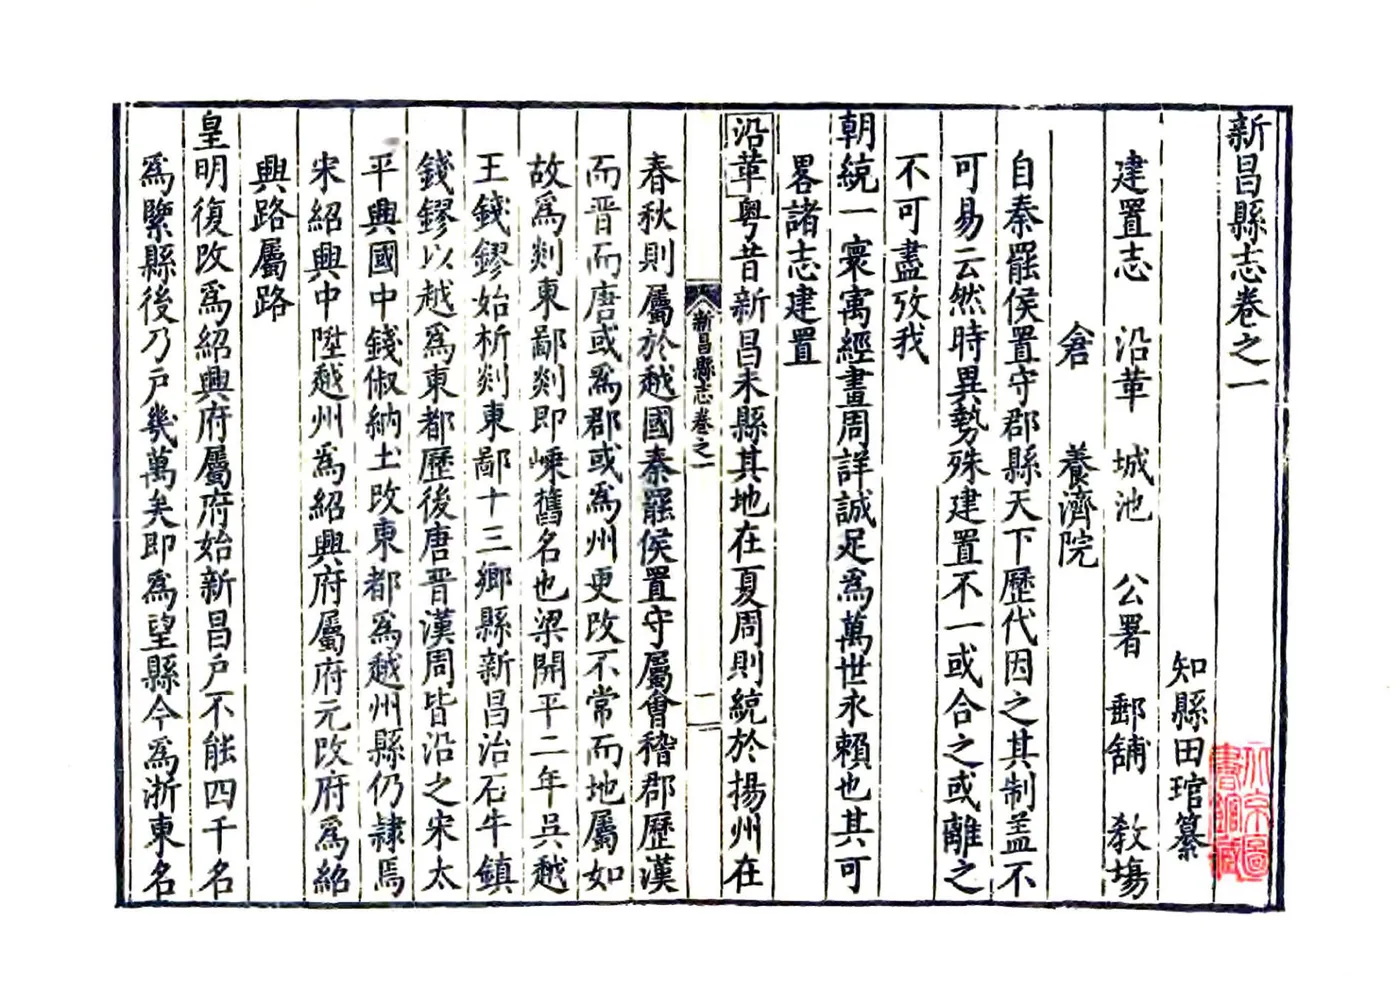 新昌縣志卷之一
知縣田琯纂
建置志 沿革 城池 公署 郵舖 教場
倉 養濟院
自秦罷侯置守郡縣天下歷代因之其制盖不
可易云然時異勢殊建置不一或合之或離之
不可盡攷我
朝統一寰㝢經畫周詳誠足為萬世永賴也其可
畧諸志建置
沿革粵昔新昌未縣其地在夏周則統於揚州在
新昌縣志卷之一
一
春秋則屬於越國秦罷侯置守屬會稽郡歷漢
而晋而唐或為郡或為州更改不常而地屬如
故為剡東鄙剡即嵊舊名也梁開平二年吳越
王錢鏐始析剡東鄙十三鄉縣新昌治石牛鎮
錢鏐以越為東都歷後唐晋漢周皆沿之宋太
平興國中錢俶納土改東都為越州縣仍隷焉
宋紹興中陞越州為紹興府屬府元改府為紹
興路屬路
皇明復改為紹興府屬府始新昌戶不能四千名
為緊縣後乃戶幾萬矣即為望縣今為浙東名
北京圖書館藏